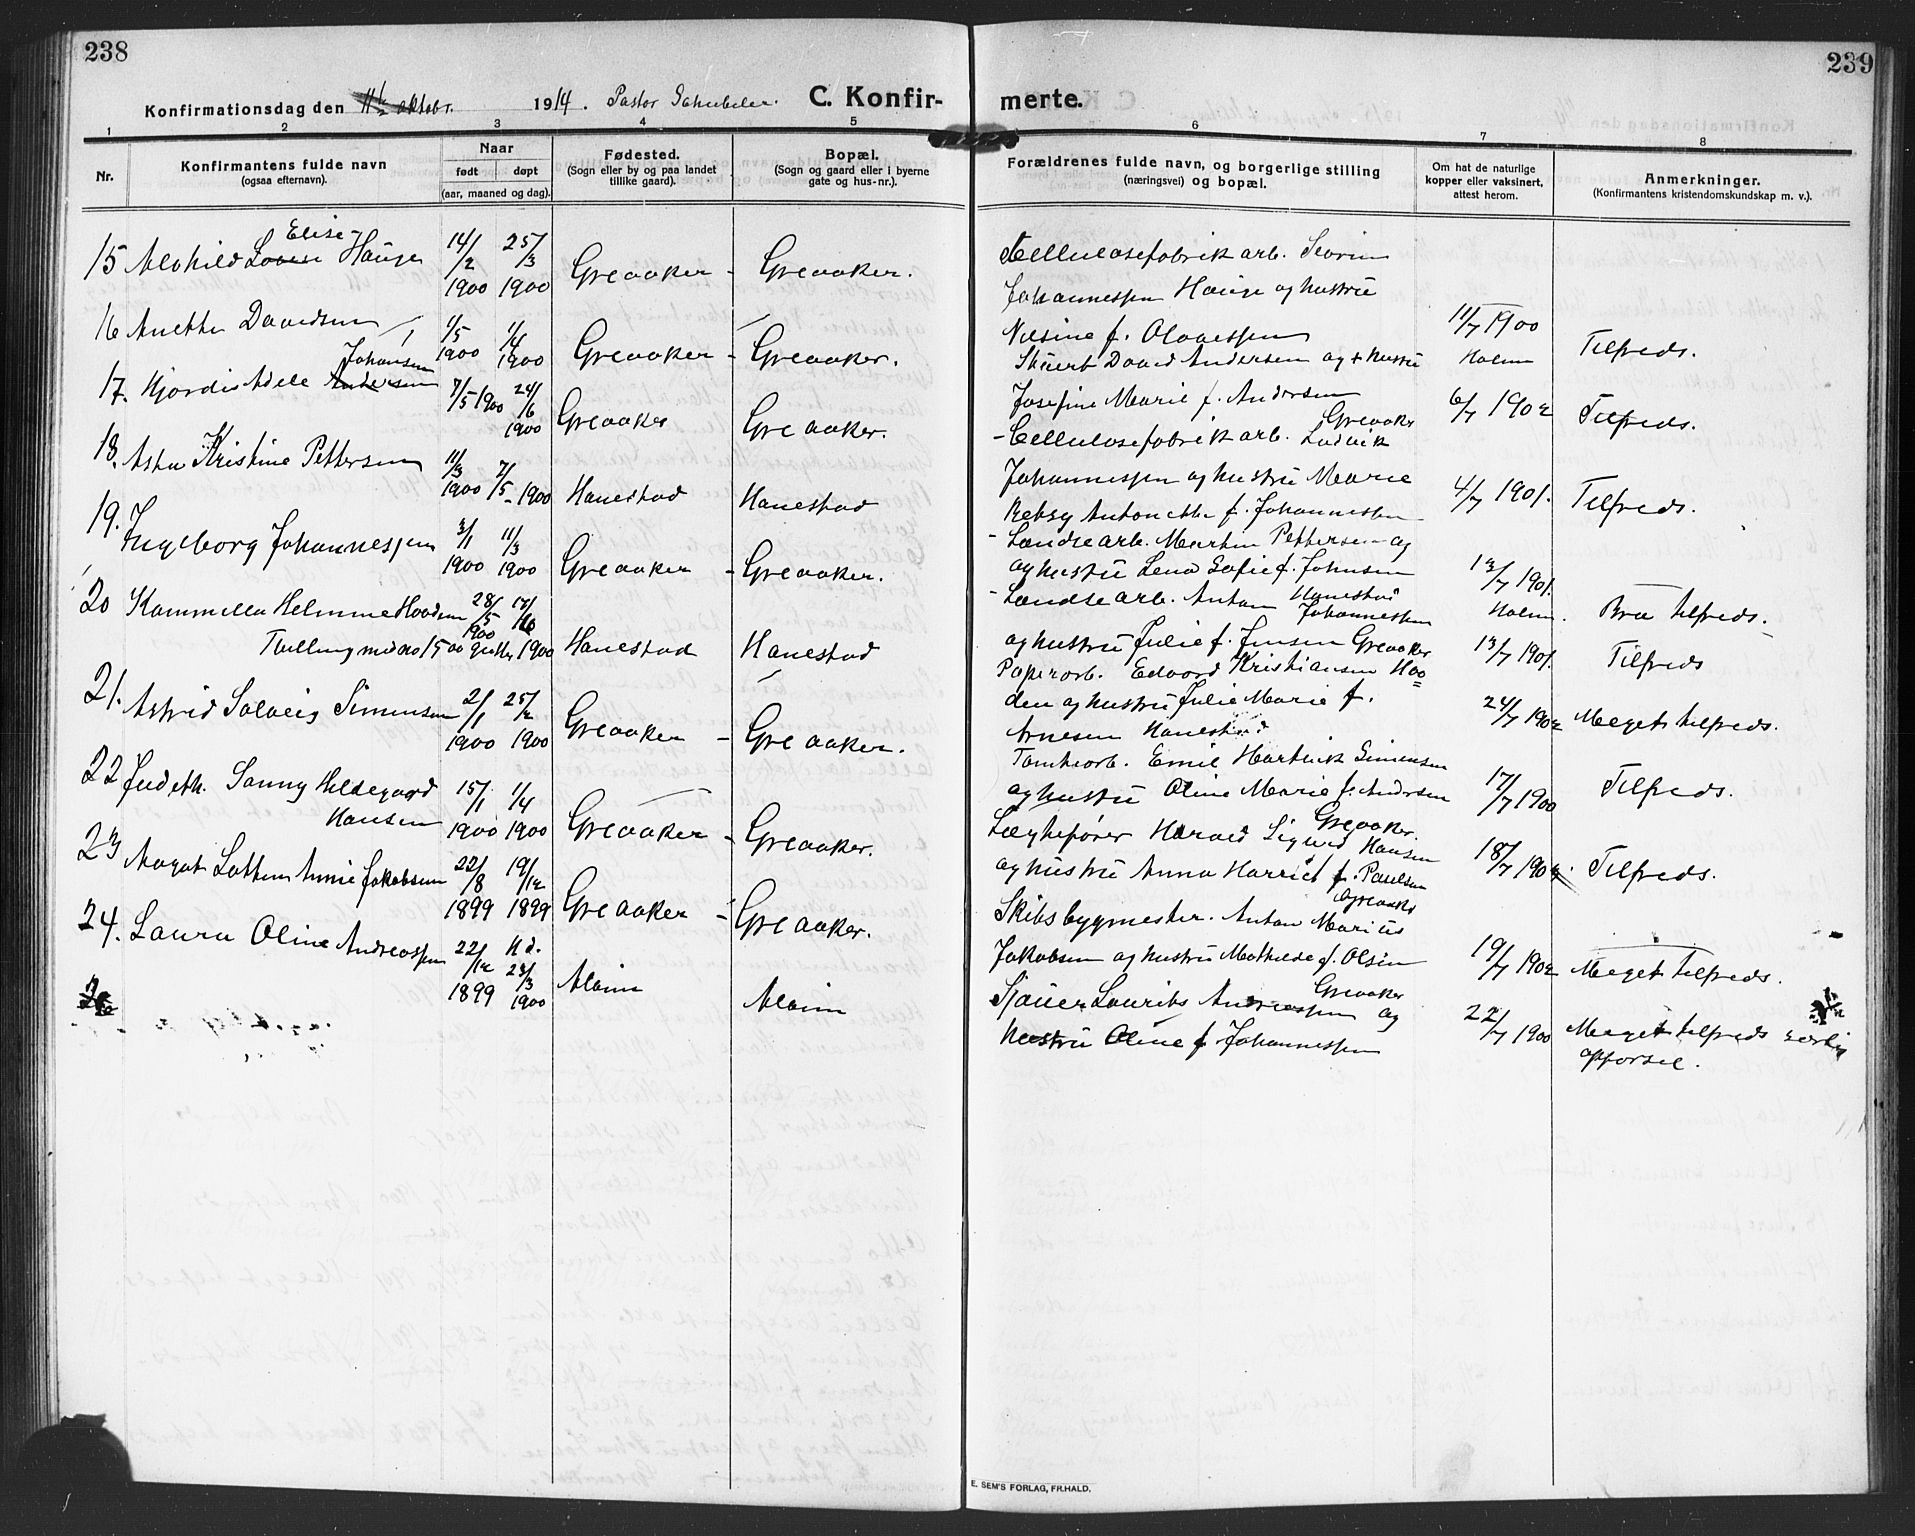 238
239
Konfirmationsdag den 11te oktobr. 1914. Pastor
C. Konfir-
merte.
1
2
3
4
5
6
7
8
Nr.
Konfirmantens fulde navn
(ogsaa efternavn).
Naar
født
døpt
(aar, maaned og dag).
Fødested.
(Sogn eller by og paa landet
tillike gaard).
Bopæl.
(Sogn og gaard eller i byerne
gate og hus-nr.).
Forældrenes fulde navn, og borgerlige stilling
(næringsvei) og bopæl.
Om hat de naturlige
kopper eller vaksinert,
attest herom.
Anmerkninger.
(Konfirmantens kristendomskundskap m. v.).
Elise
15 Alvhild Lovise Hauge 14/2 1900 25/3 1900 Greaaker - Greaaker.
Cellulosefabrik arb. Severin
Johannessen Hauge og hustru
Nilsine f. Olavessen 11/7 1900 Tilfreds.
16 Anette Davidsen 1/5 1900 1/4 1900 Greaaker - Greaaker.
Skuerb David Andersen og + hustru Holm
Josefine Marie f. Andersen 6/7 1902 Tilfreds.
Greaaker
Johansen
17. Hjordis Adele Andersen 7/5 1900 24/6 1900 Greaaker Greaaker.
- Cellulosefabrik arb. Ludvik
Johannessen og hustru Marie 4/7 1901. Tilfreds.
Betsy Antonette f. Johannessen
18. Asta Kristine Pettersen 11/3 1900 7/5 - 1900 Hanestad Hanestad
- Landsearb. Martin Pettersen og
og hustru Lena Sofie f. Johnsen 13/7 1901.
Hanestad
19. Ingeborg Johannessen 3/1 1900 11/3 1900 Greaaker - Greaaker.
- Landsearb. Anton Johannessen Holm. Bra tilfreds.
og hustru Julie f. Jensen Greaaker 13/7 1901. Tilfreds
20 Kammilla Helmine Hooden 28/5 1900 17/6 1900 Hanestad Hanestad
Papirarb. Edvard Kristiansen Hoo=
den og hustru Julie Marie f. 24/7 1902 Meget tilfreds.
Arnesen Hanestad
21. Astrid Solveig Simensen 21/1 1900 25/2 1900 Greaaker - Greaaker.
Tomtearb. Emil Hartvik Simensen
og hustru Oline Marie f. Andersen 17/7 1900 Tilfreds.
Greaaker.
22 Judith Sanny Hildegaard
Hansen 15/1 1900 1/4 1900 Greaaker - Greaaker.
Harald Sigurd Hansen
og hustru Anna Harriet f. Paulsen 18/7 1902. Tilfreds.
Greaaker
23 Magot Lotten Annie Jakobsen 22/8 1899 19/12 1899 Greaaker - Greaaker.
Skibsbygmester. Anton Marius
Jakobsen og hustru Mathilde f. Olsen 19/7 1902 Meget tilfreds.
Greaaker
24. Laura Oline Andreassen 22/12 1899 Hd. 23/3 1900 Alvim Alvim
Sjauer Laurits Andreassen og
hustru Oline f. Johannessen 22/7 1900 Meget tilfreds
opførsel.
E. SEM'S FORLAG, FR.HALD.